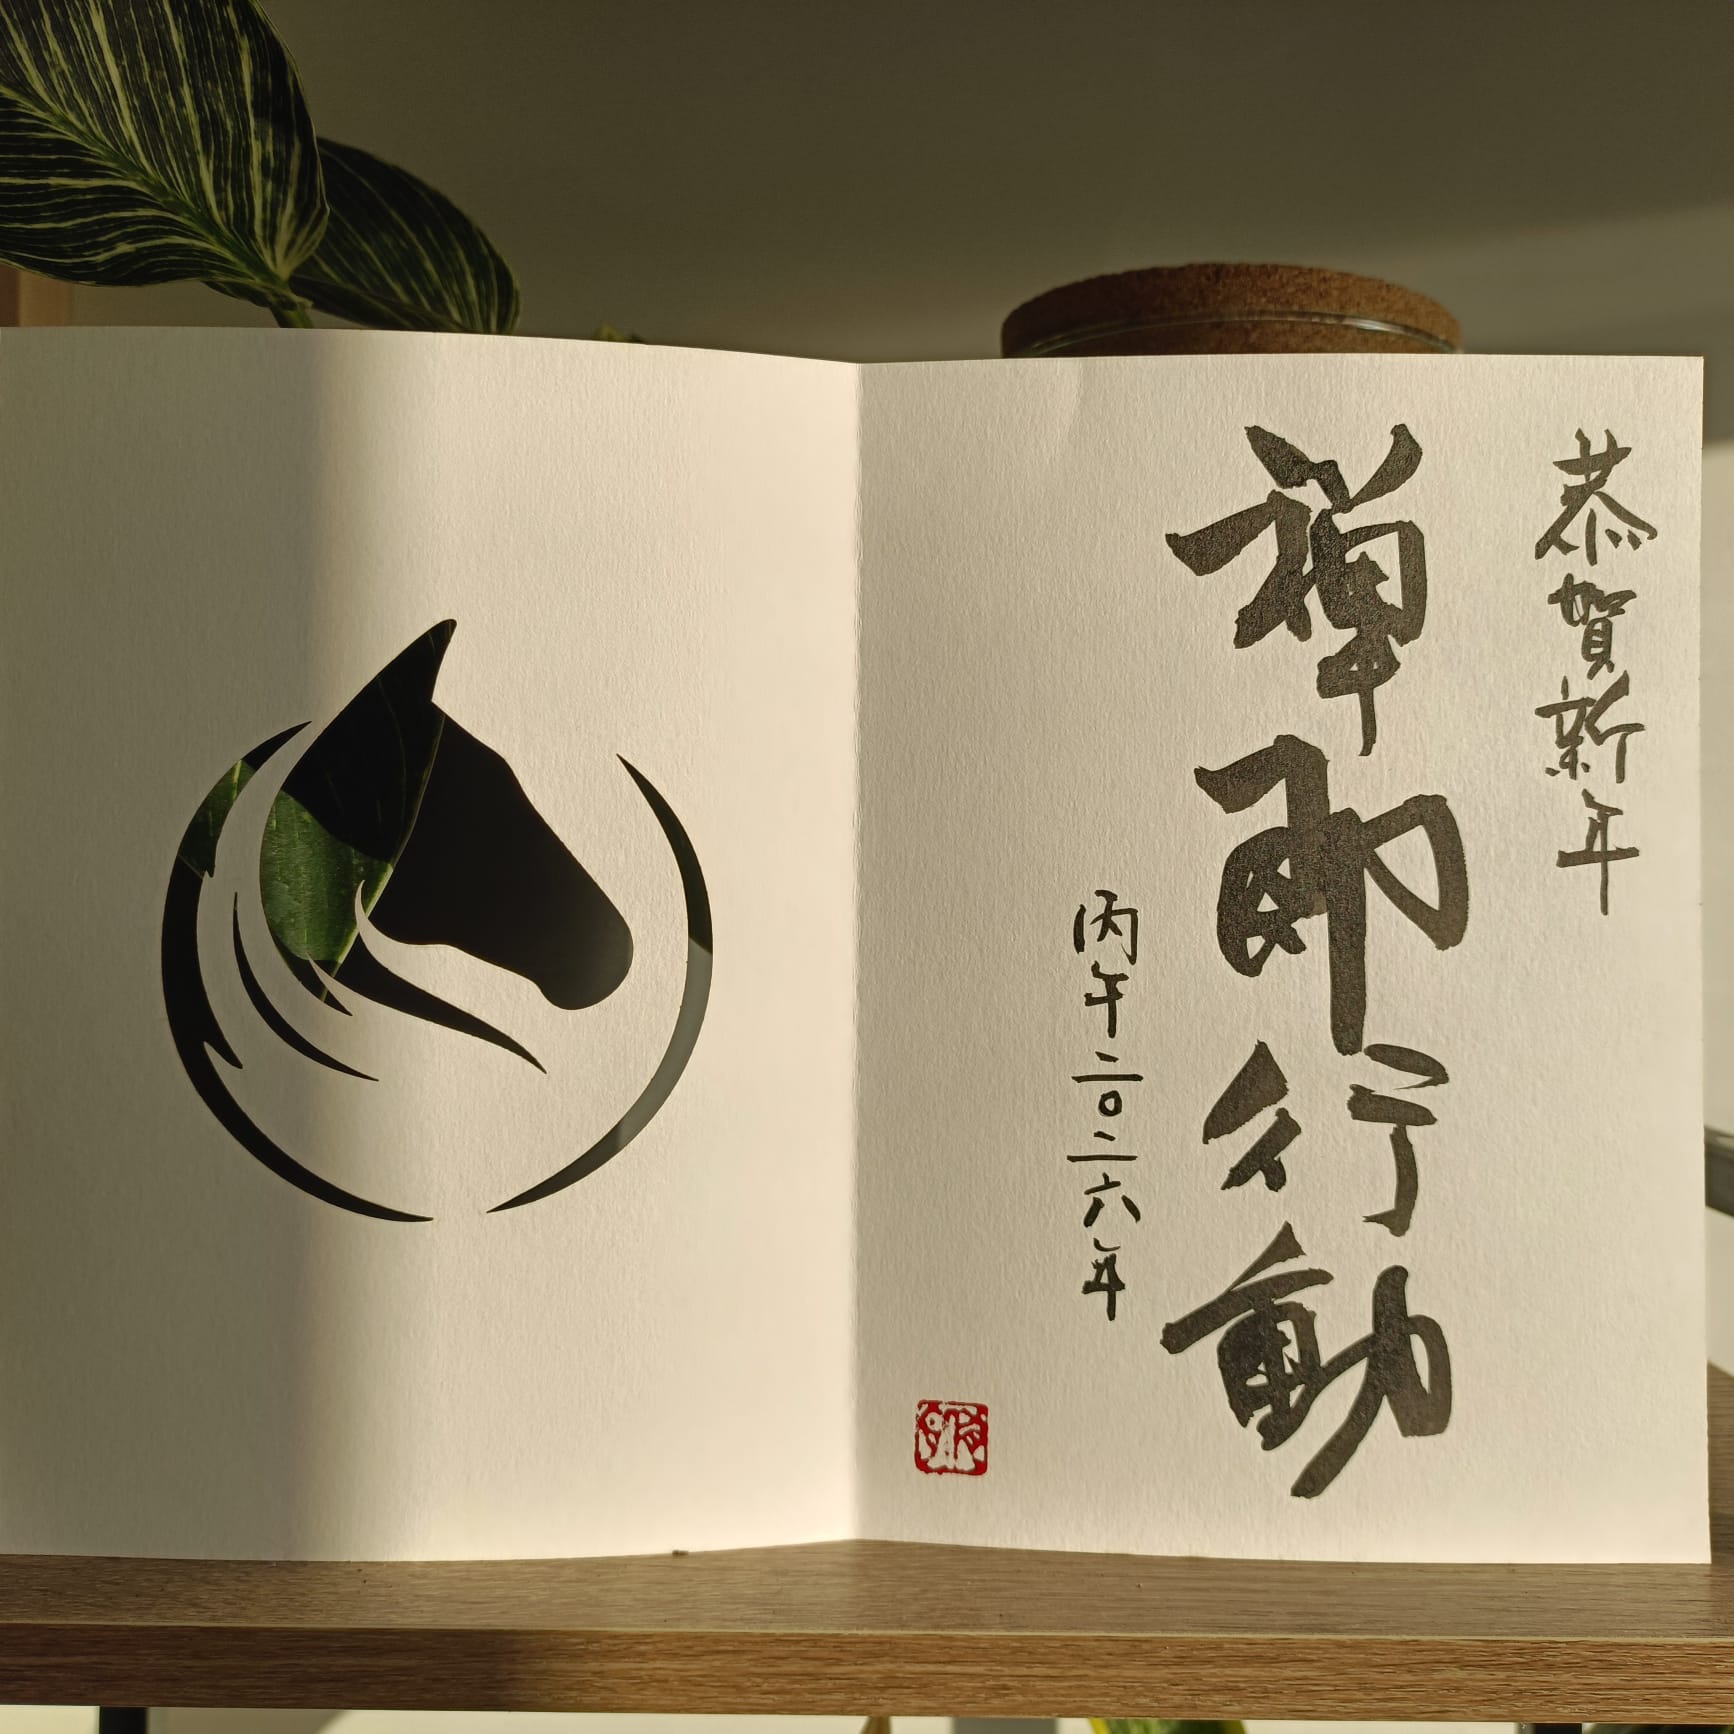 恭賀新年
禅即行動
丙午二〇二六年